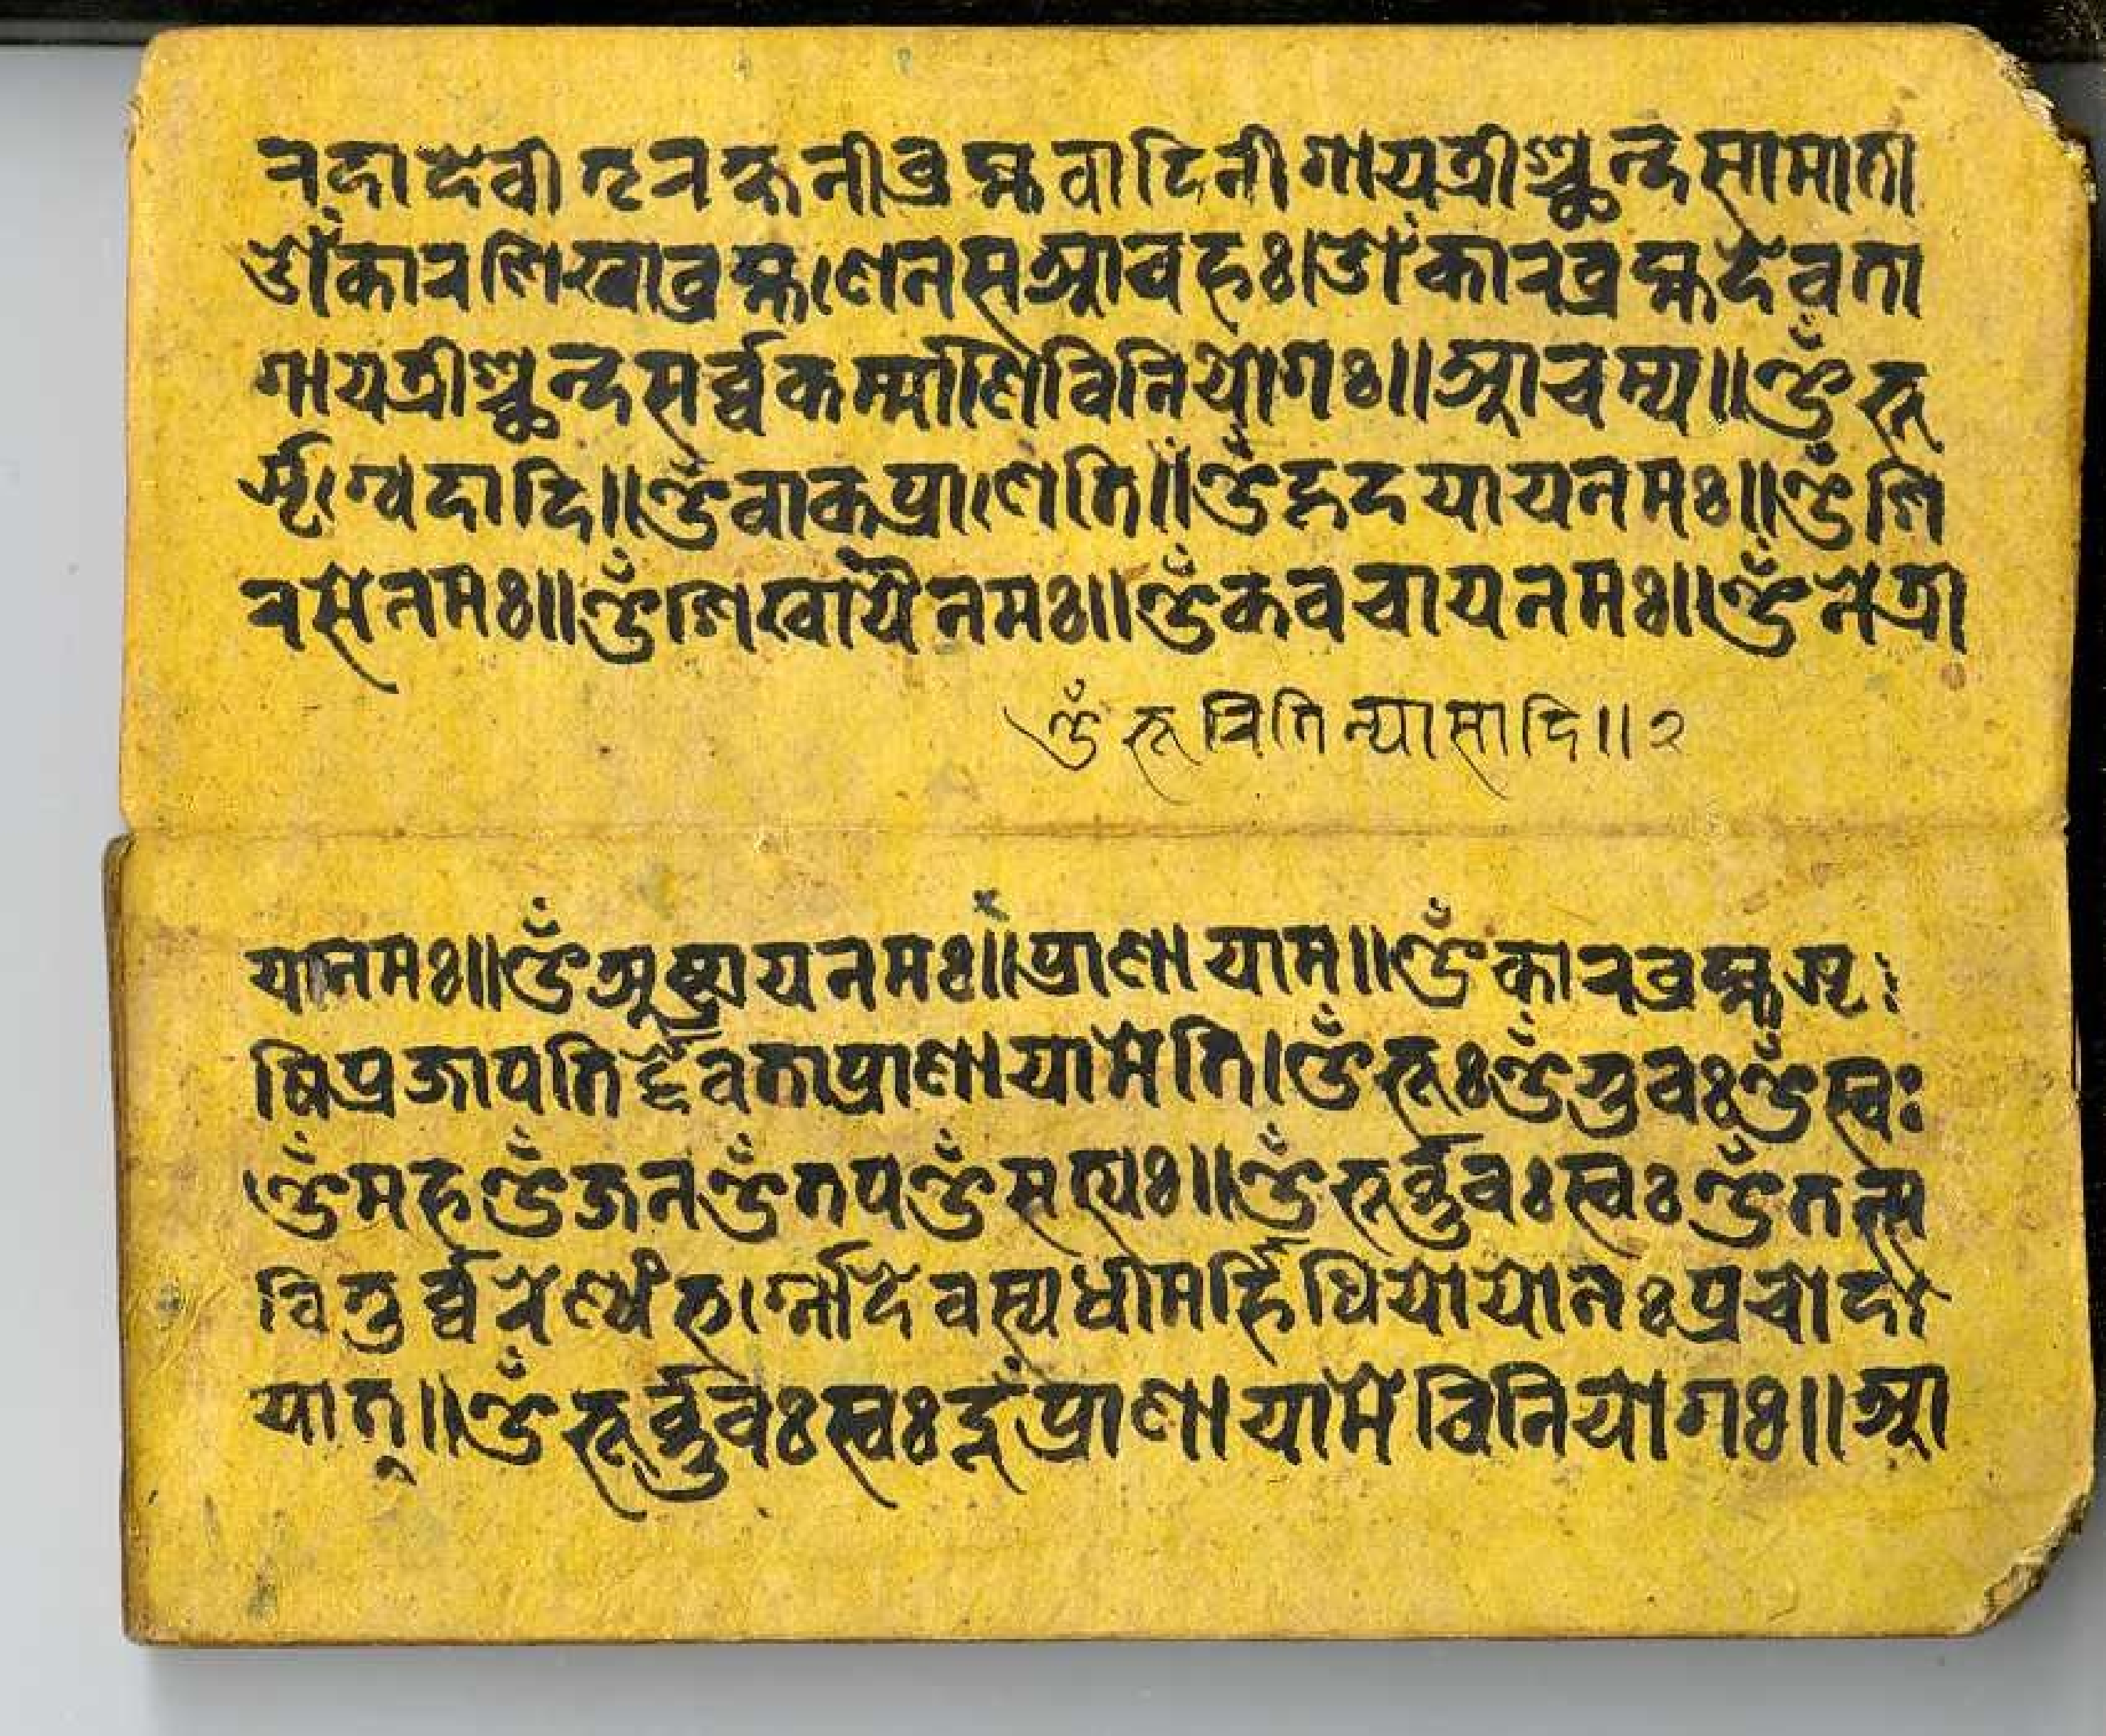 रदादेवी तृरक्षनीब्रह्मवादिनीगायत्रीश्छन्दसामाता
ओंकारशिखाब्रह्मणेनसआवहः।ओंकारब्रह्मदेवता
गायत्रीश्छन्दसर्व्वकर्म्माणिविनियोगः॥आचम्य॥ॐभू
ऋग्वेदादि॥ॐवाकप्राणेति॥ॐहृदयायनमः॥ॐशि
रसेनमः॥ॐशिखायैनमः॥ॐकवचायनमः॥ॐनेत्रा
ॐभूरितिन्यासादि॥२
यानमः॥ॐअस्त्रायनमः॥प्राणायाम॥ॐकारब्रह्मऋ
षिप्रजापतिर्द्देवताप्राणायामेति।ॐभूःॐभुवःॐस्वः
ॐमहॐजनॐतपॐसत्यः॥ॐभूर्ब्भुवःस्वःॐतत्स
वितुर्व्वरेण्यंभार्ग्गोदेवस्यधीमहिधियोयोनःप्रचोद
यात्॥ॐभूर्ब्भुवःस्वःइंप्राणायामेविनियोगः॥आ